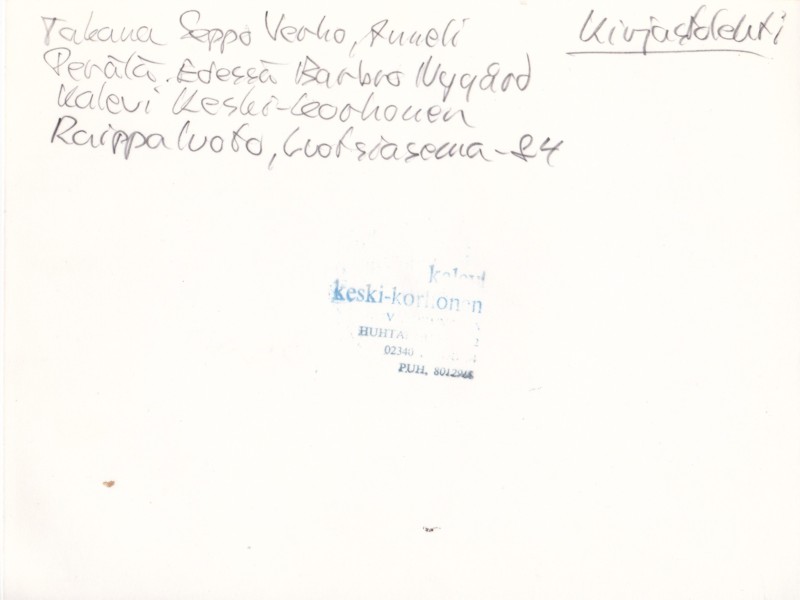 Takana Seppo Verho, Anneli
Perälä. Edessä Barbro Nygård
Kalevi Keski-Korhonen
Raippaluoto, Luotsiasema-84
Kirjastolehti
keski-korhonen
02340
PUH.